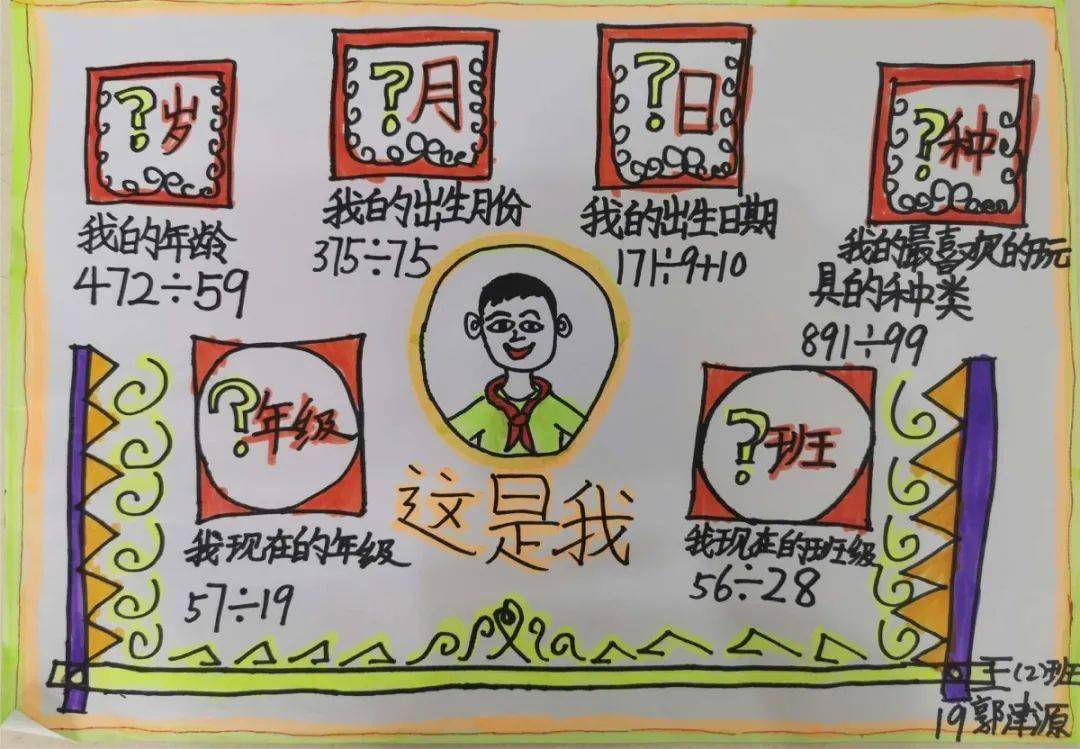 ?岁
?月
?日
?种
我的年龄
472÷59
我的出生月份
375÷75
我的出生日期
171÷9+10
我的最喜欢的玩
具的种类
891÷99
?年级
?班
这是我
我现在的年级
57÷19
我现在的班级
56÷28
(2)班
19郭津源